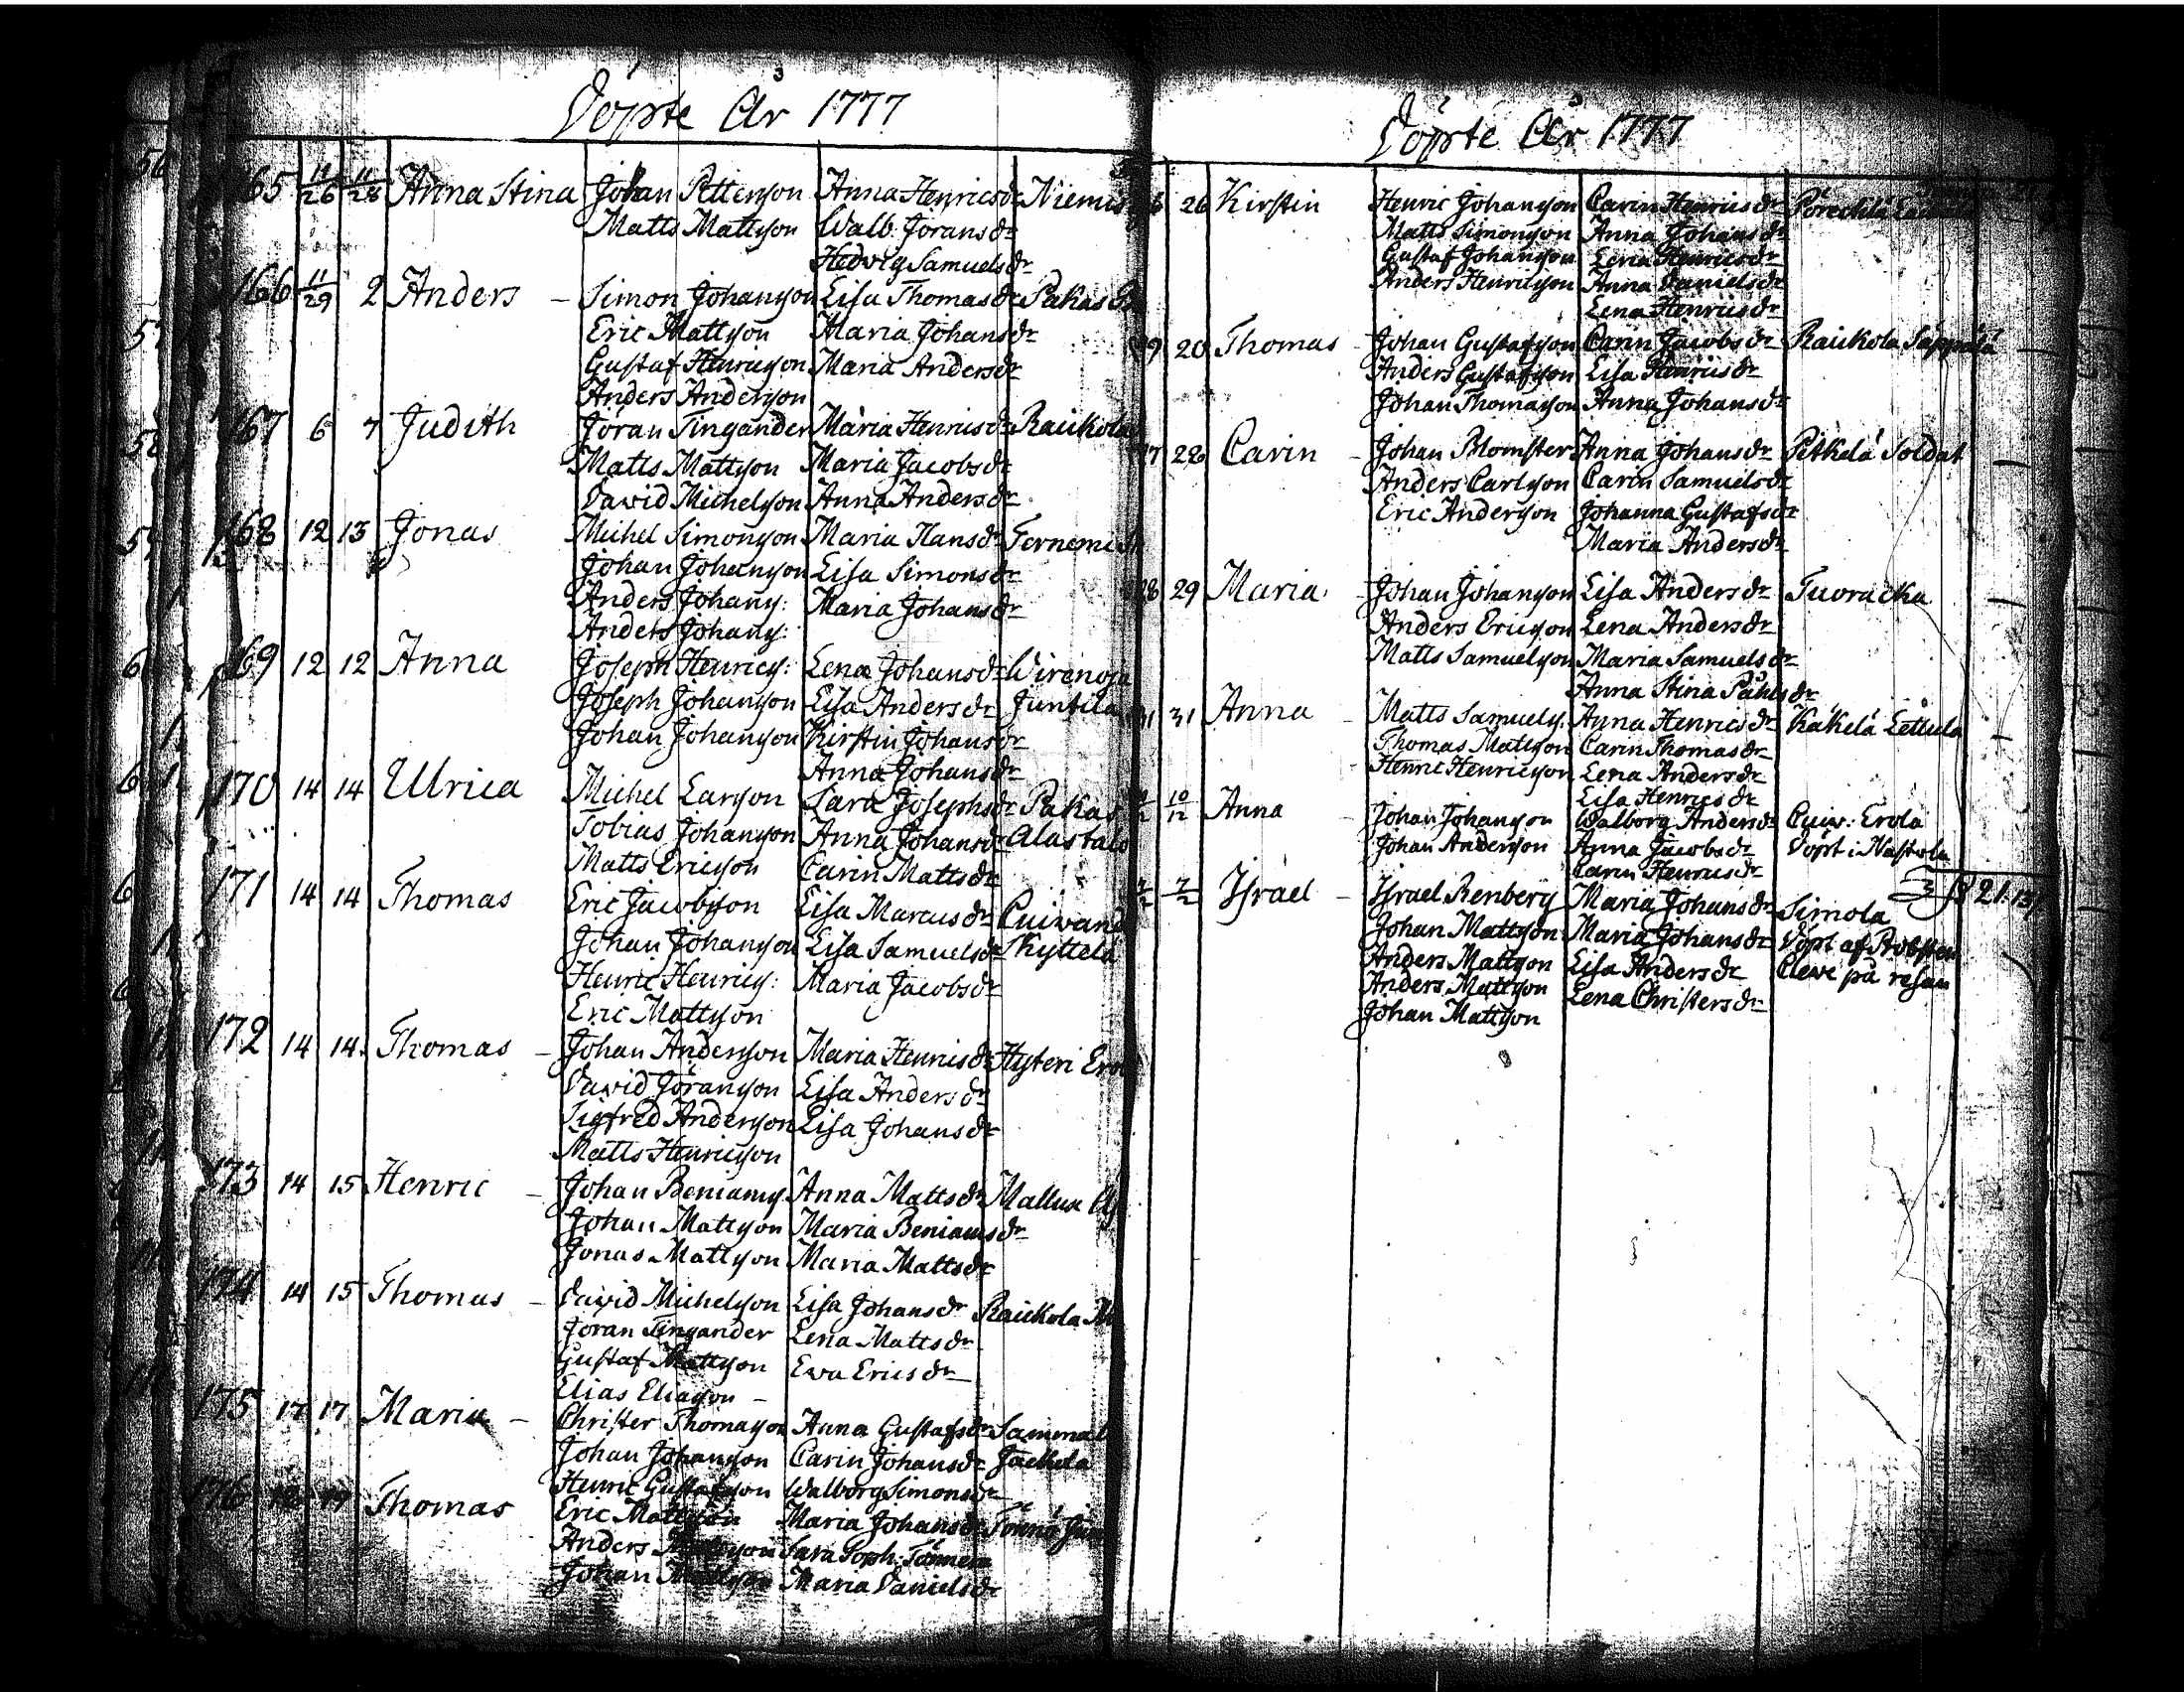 Döpte År 1777
165 11/26 11/28 Anna Stina Johan Pettersson Anna Henricsdr Niemis
Matts Mattsson Walb: Jöransdr
Hedvig Samuelsdr
166 11/29 2 Anders – Simon Johansson Lisa Thomasdr Pakas
Eric Mattsson Maria Johansdr
Gustaf Henricsson Maria Andersdr
Anders Andersson
167 6 7 Judith Jöran Tingander Maria Henricsdr Raickola
Matts Mattsson Maria Jacobsdr
David Michelsson Anna Andersdr
168 12 13 Jonas Michel Simonsson Maria Hansdr
Johan Johansson Lisa Simonsdr
Anders Johanss: Maria Johansdr
Anders Johanss:
169 12 12 Anna Joseph Henrics: Lena Johansdr Wirenoja
Joseph Johansson Lisa Andersdr Juntila
Johan Johansson Kirstin Johansdr
Anna Johansdr
170 14 14 Ulrica Michel Larsson Sara Josephsdr Pakas
Tobias Johansson Anna Johansdr Alastalo
Matts Ericsson Carin Mattsdr
171 14 14 Thomas Eric Jacobsson Lisa Marcusdr Cuiwand
Johan Johansson Lisa Samuelsdr Skyttelä
Henric Henrics: Maria Jacobsdr
Eric Mattsson
172 14 14 Thomas – Johan Andersson Maria Henricsdr Hysteri
David Jöransson Lisa Andersdr
Sigfred Andersson Lisa Johansdr
Matts Henricsson
173 14 15 Henric – Johan Beniamss. Anna Mattsdr
Johan Mattsson Maria Beniamsdr
Jonas Mattsson Maria Mattsdr
174 14 15 Thomas – David Michelsson Lisa Johansdr Raickola
Jöran Tingander Lena Mattsdr
Gustaf Mattsson Ewa Ericsdr
Elias Eliasson –
175 17 17 Maria – Christer Thomasson Anna Gustafsdr
Johan Johansson Carin Johansdr Jackela
Henric Gustafsson Walborg Simonsdr
176 17 Thomas Eric Mattsson Maria Johansdr Tönnö
Anders Sara Soph:
Johan Maria Danielsdr
Döpte År 1777
26 Kirstin Henric Johansson Carin Henricsdr
Matts Simonsson Anna Johansdr
Gustaf Johansson Lena Henricsdr
Anders Henricsson Anna Danielsdr
Lena Henricsdr
20 Thomas – Johan Gustafsson Carin Jacobsdr Raickola Säppälä
Anders Gustafsson Lisa Henricsdr
Johan Thomasson Anna Johansdr
28 Carin – Johan Blomster Anna Johansdr Petkelä Soldat
Anders Carlsson Carin Samuelsdr
Eric Andersson Johanna Gustafsdr
Maria Andersdr
28 29 Maria – Johan Johansson Lisa Andersdr Tuoracka
Anders Ericsson Lena Andersdr
Matts Samuelsson Maria Samuelsdr
Anna Stina Påhlsdr
31 31 Anna – Matts Samuelss. Anna Henricsdr Käkelä
Thomas Mattsson Carin Thomasdr
Henric Henricsson Lena Andersdr
Lisa Henricsdr
10/12 Anna – Johan Johansson Walborg Andersdr Cuiw: Erola
Johan Andersson Anna Jacobsdr Döpt i Nastola
Carin Henricsdr
7/2 Israel – Israel Renberg Maria Johansdr Simola
Johan Mattsson Maria Johansdr Döpt af Probsten
Anders Mattsson Lisa Andersdr Cleve på resan
Anders Mattsson Lena Christersdr
Johan Mattsson